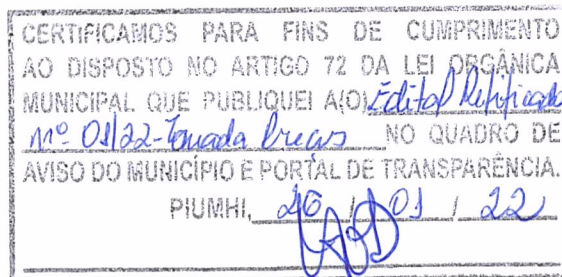 CERTIFICAMOS PARA FINS DE CUMPRIMENTO
AO DISPOSTO NO ARTIGO 72 DA LEI ORGÂNICA
MUNICIPAL QUE PUBLIQUEI A(O) Edital Retificado
nº 01/22-Tomada Preços NO QUADRO DE
AVISO DO MUNICÍPIO E PORTAL DE TRANSPARÊNCIA.
PIUMHI, 26 / 01 / 22